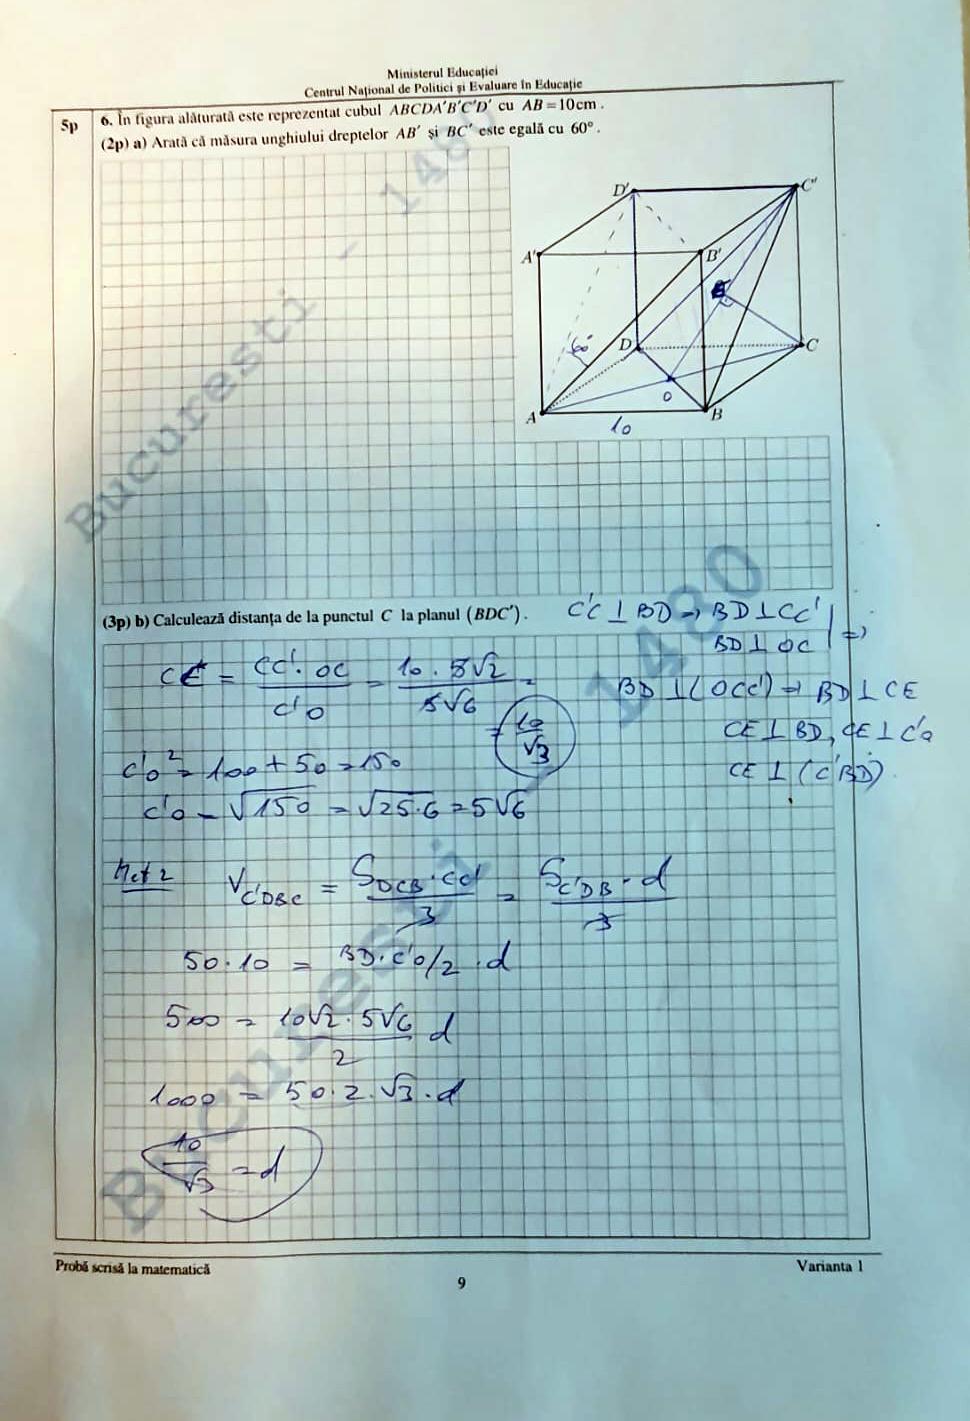 Ministerul Educației
Centrul Național de Politici și Evaluare în Educație
5p
6. În figura alăturată este reprezentat cubul ABCDA'B'C'D' cu AB = 10cm .
(2p) a) Arată că măsura unghiului dreptelor AB' și BC' este egală cu 60° .
D'
C'
A'
B'
E
60°
D
C
O
A
B
10
Bucuresti - 1480
(3p) b) Calculează distanța de la punctul C la planul (BDC') .
C'C ⊥ BD → BD ⊥ CC'
BD ⊥ OC | =>
BD ⊥ (OCC') → BD ⊥ CE
CE ⊥ BD, CE ⊥ C'O
CE ⊥ (C'BD).
CE = CC'·OC / C'O = 10·5√2 / 5√6 =
= 10/√3
C'O² = 100+50=150
C'O = √150 = √25·6 = 5√6
Met 2
V C'DBC = S DCB · CC' / 3 = S C'DB · d / 3
50·10 = BD·C'O/2 ·d
500 = 10√2·5√6 / 2 d
1000 = 50·2·√3·d
10/√3 = d
Bucuresti - 1480
Probă scrisă la matematică
Varianta 1
9